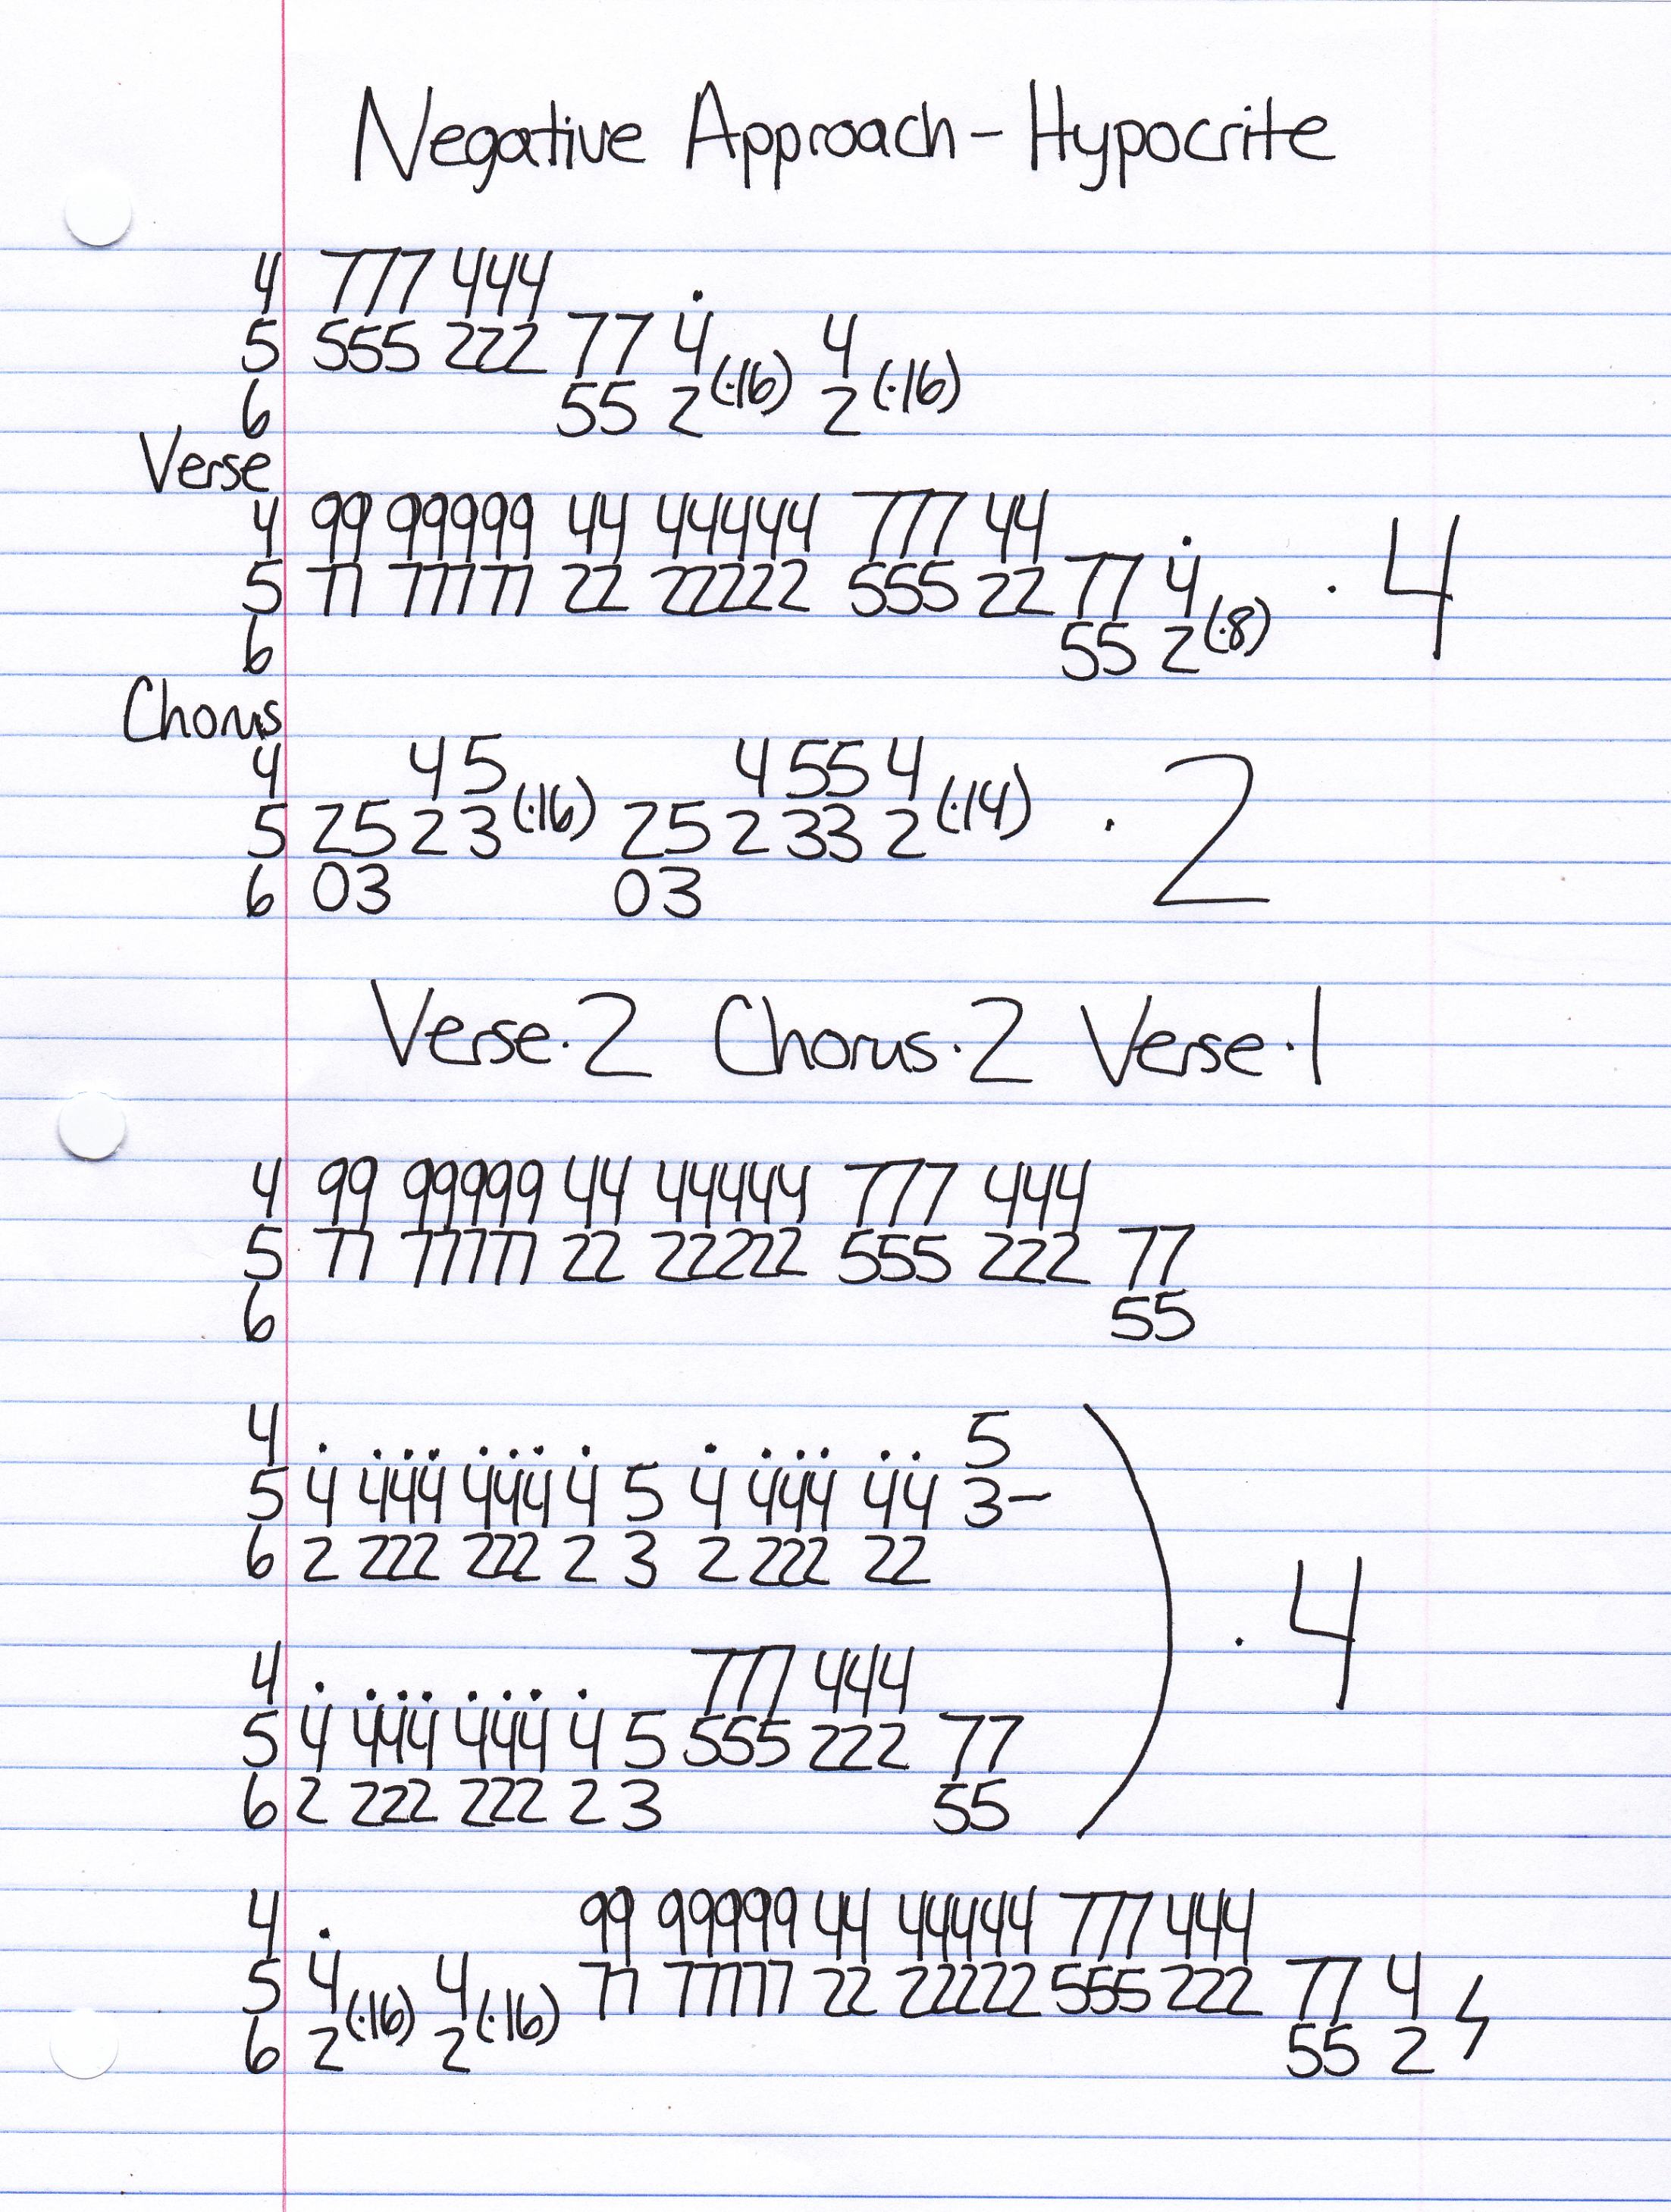 Negative Approach - Hypocrite
4 777 444
5 555 222 77 4(·16) 4(·16)
6 55 2 2
Verse
4 99 99999 44 44444 777 44
5 77 77777 22 22222 555 22 77 4(·8) · 4
6 55 2
Chorus
4 4 5 4 55 4
5 25 2 3(·16) 25 2 33 2(·14) · 2
6 03 03
Verse·2 Chorus·2 Verse·1
4 99 99999 44 44444 777 444
5 77 77777 22 22222 555 222 77
6 55
4 5
5 4 444 444 4 5 4 444 44 3-
6 2 222 222 2 3 2 222 22
· 4
4 777 444
5 4 444 444 4 5 555 222 77
6 2 222 222 2 3 55
4 99 99999 44 44444 777 444
5 4(·16) 4(·16) 77 77777 22 22222 555 222 77 4
6 2 2 55 2